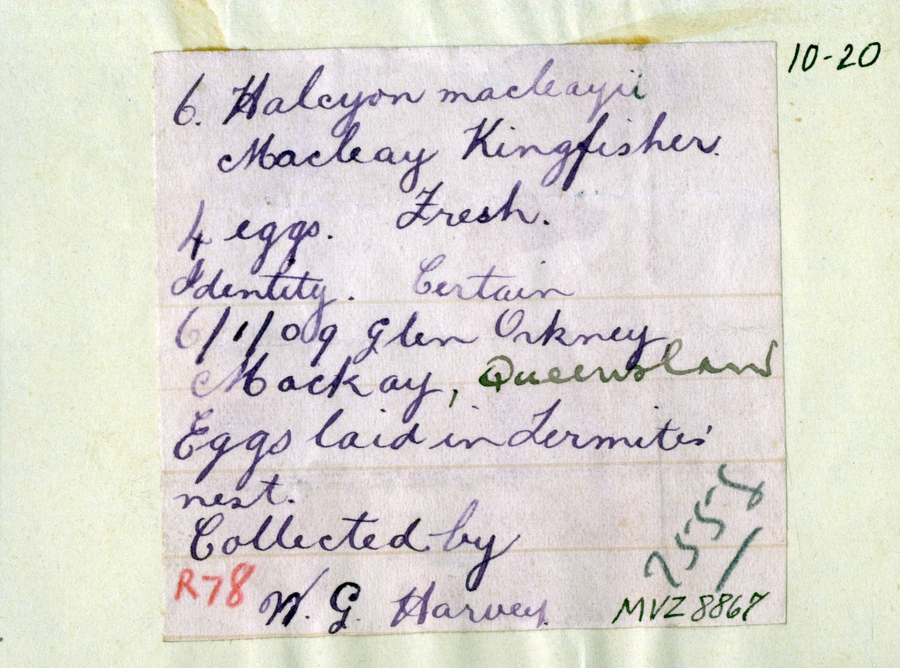 10-20
6. Halcyon macleayii
Macleay Kingfisher.
4 eggs. Fresh.
Identity. Certain
6/1/09 Glen Orkney
Mackay, Queensland
Eggs laid in Termites'
nest.
Collected by
R78 W. G. Harvey.
MVZ 8867